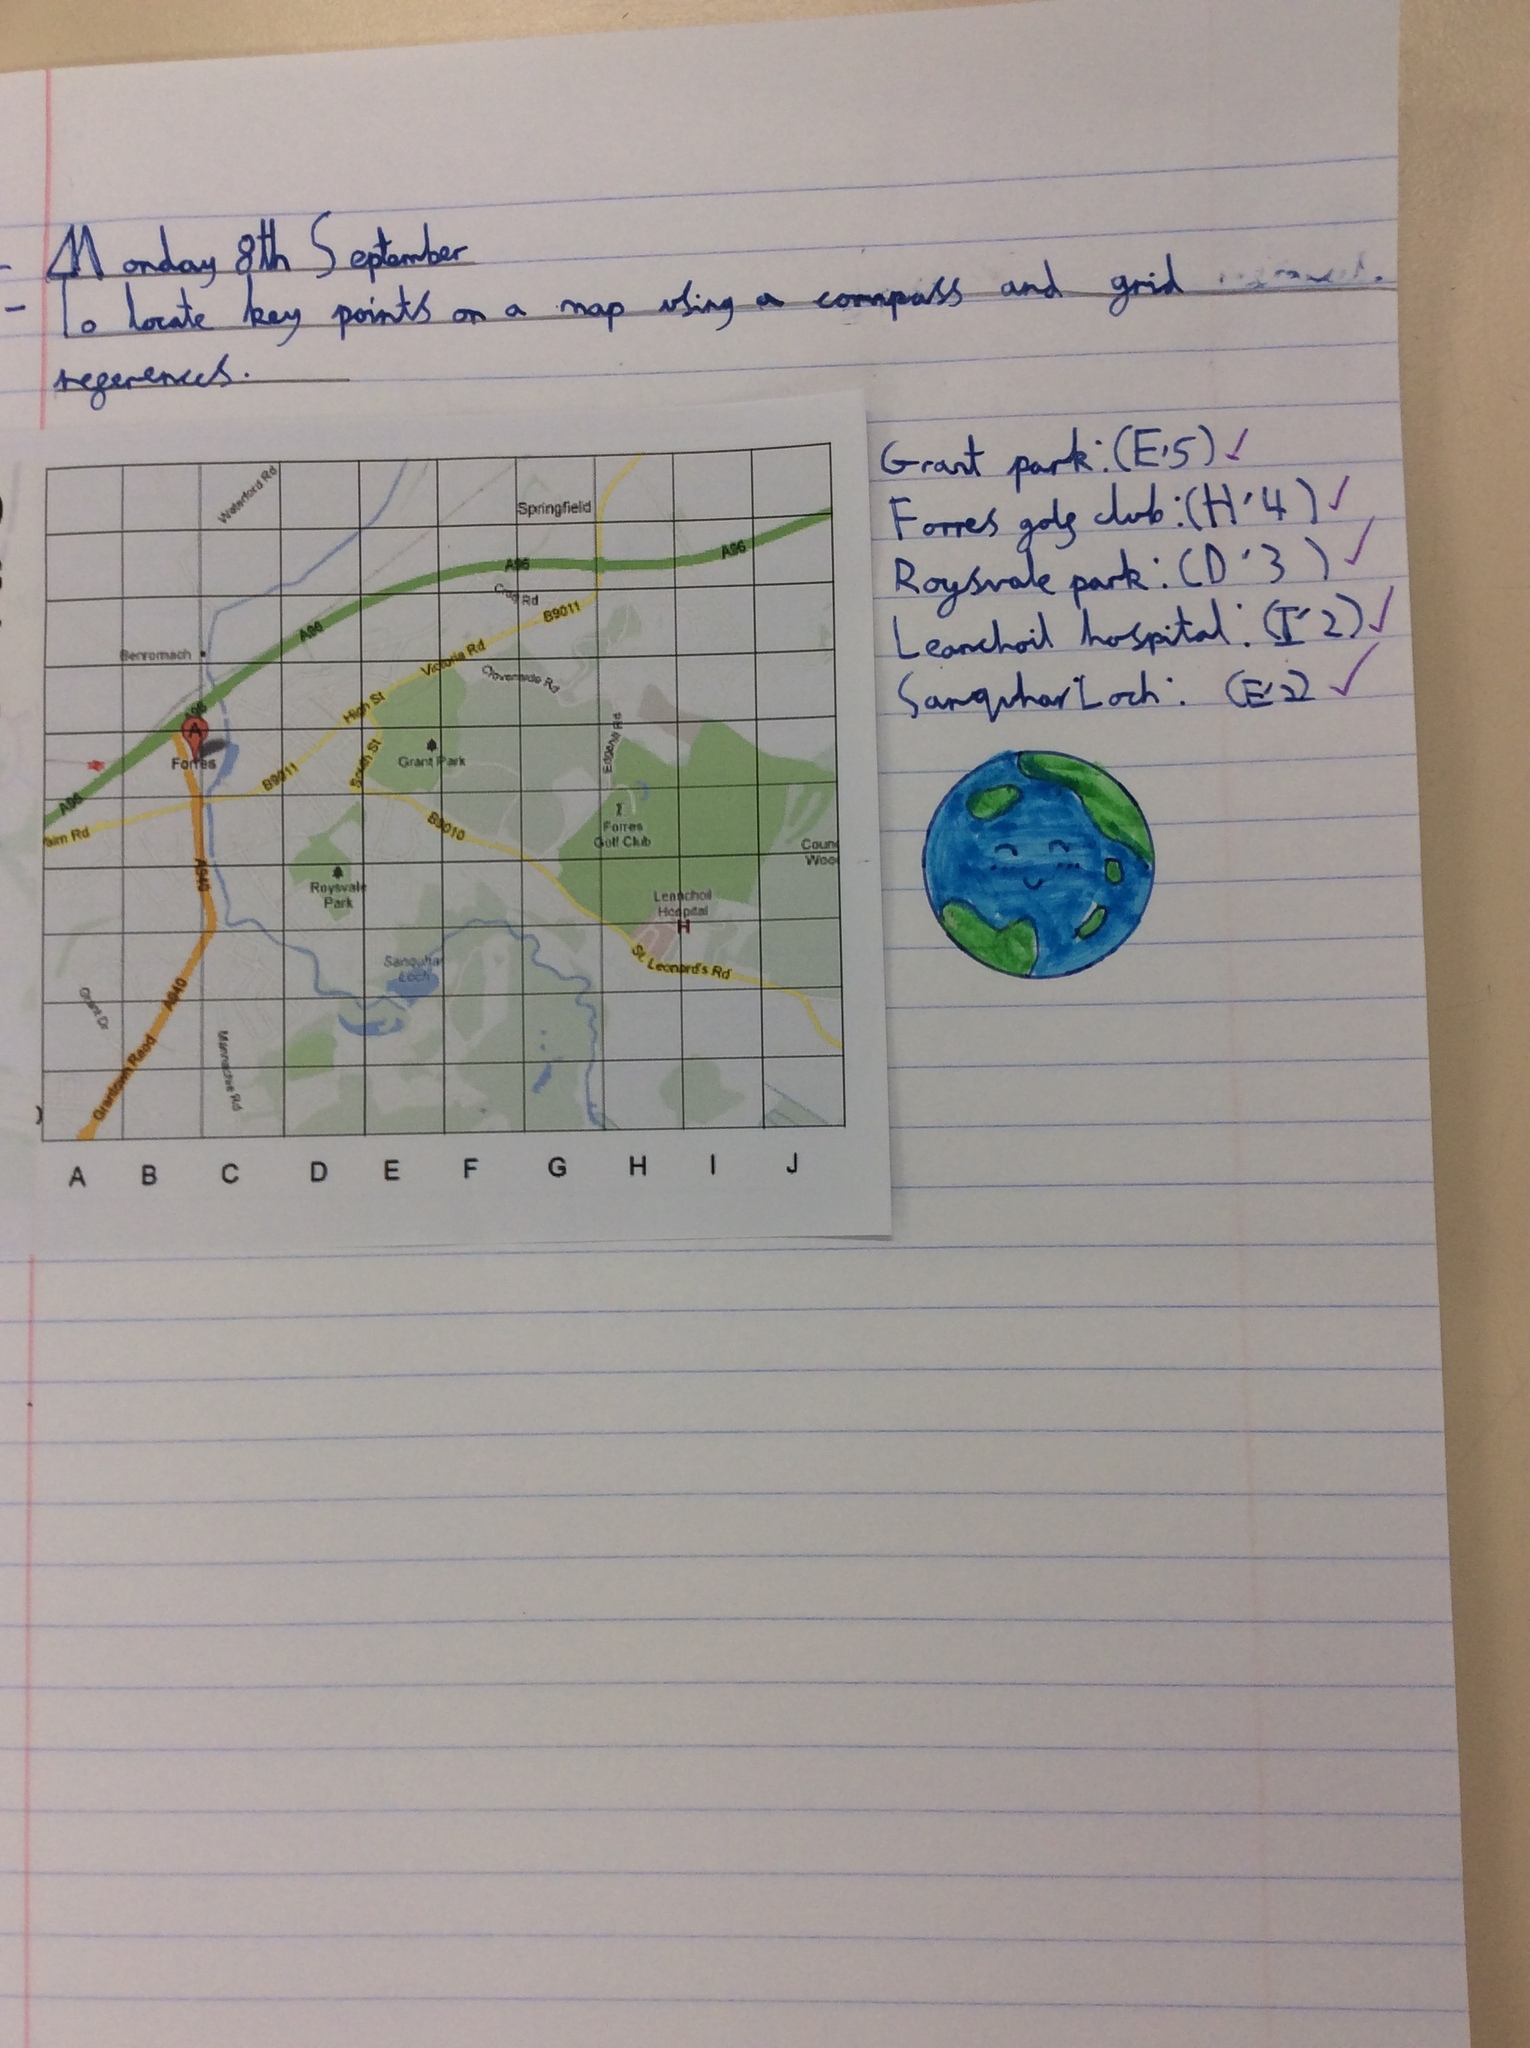 - Monday 8th September
- To locate key points on a map using a compass and grid
regerences.
Grant park: (E,5) ✓
Forres golg club: (H,4) ✓
Roysvale park: (D,3) ✓
Leanchoil hospital: (I,2) ✓
Sanquhar Loch: (E,2) ✓
Waterford Rd
Springfield
A96
A96
Rd
B9011
A96
Victoria Rd
Benromach
High St
A96
A
Forres
South St
Grant Park
Edgehill Rd
B9011
A96
airn Rd
B9010
Forres
Golf Club
Coun
Woo
A940
Roysvale
Park
Leanchoil
Hospital
H
Sanquhar
Loch
St. Leonard's Rd
Grant Dr
A940
Mannachie Rd
Grantown Raod
A B C D E F G H I J